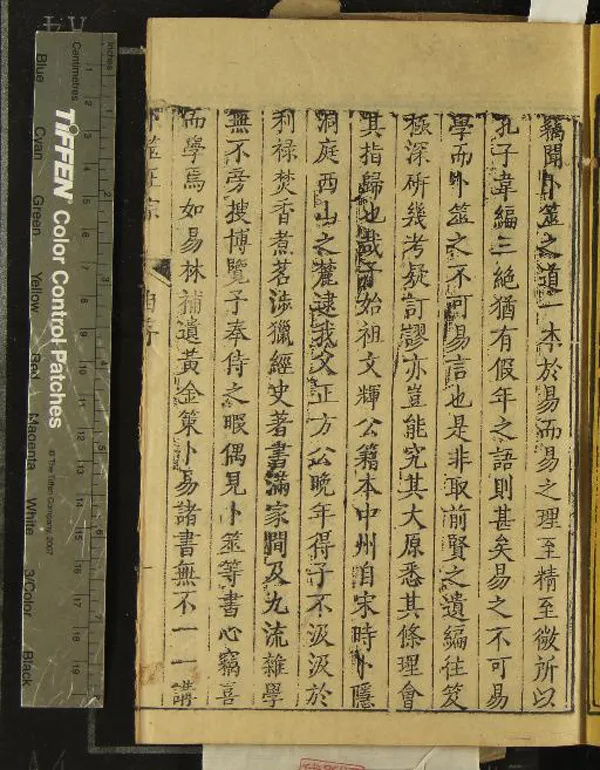 竊聞卜筮之道一本於易而易之理至精至微所以
孔子韋編三絕猶有假年之語則甚矣易之不可易
學而卜筮之不可易言也是非取前賢之遺編往笈
極深研幾考疑訂謬亦豈能究其大原悉其條理會
其指歸也哉予始祖文輝公籍本中州自宋時卜隱
洞庭西山之麓逮我父正方公晚年得子不汲汲於
利祿焚香煮茗涉獵經史著書滿家間及九流雜學
無不旁搜博覽予奉侍之暇偶見卜筮等書心竊喜
而學焉如易林補遺黃金策卜易諸書無不一一講
卜筮正宗
自序
一
Inches
Centimetres
TIFFEN Color Control Patches
© The Tiffen Company, 2007
Blue
Cyan
Green
Yellow
Red
Magenta
White
3/Color
Black